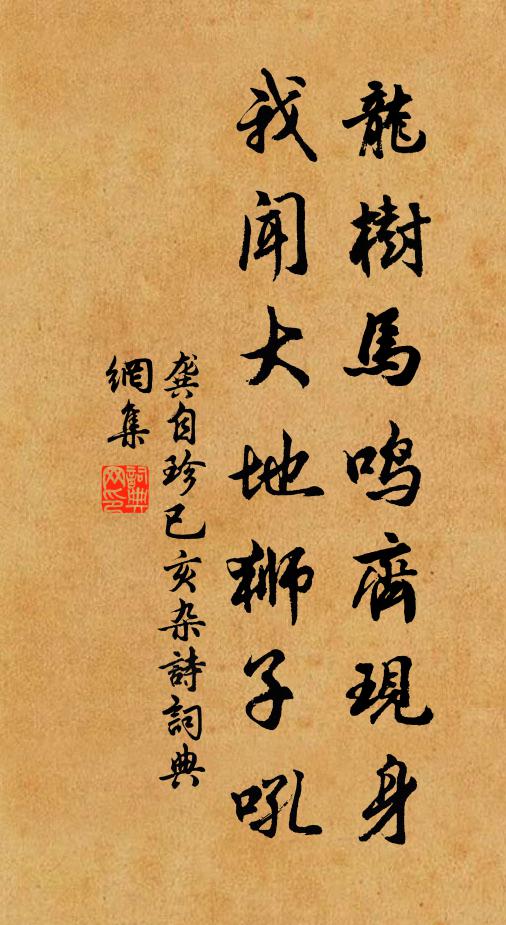 龍樹馬鳴齊現身
我聞大地獅子吼
龔自珍己亥杂詩詞典
網集
詞典
网印